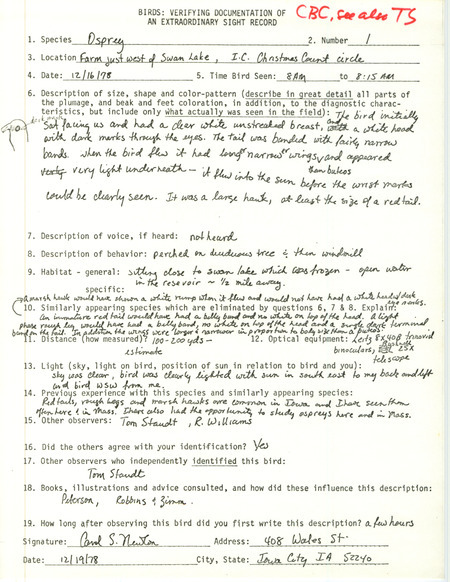 BIRDS: VERIFYING DOCUMENTATION OF
AN EXTRAORDINARY SIGHT RECORD
CBC, see also TS
1. Species Osprey 2. Number 1
3. Location Farm just west of Swan Lake, I.C. Christmas Count circle
4. Date: 12/16/78 5. Time Bird Seen: 8AM to 8:15 AM
6. Description of size, shape and color-pattern (describe in great detail all parts of
the plumage, and beak and feet coloration, in addition, to the diagnostic charac-
teristics, but include only what actually was seen in the field): The bird initially
sat facing us and had a clear white unstreaked breast, and a white head
with dark marks through the eyes. The tail was banded with fairly narrow
bands. When the bird flew it had long narrow wings, and appeared
than buteos
very light underneath - it flew into the sun before the wrist marks
could be clearly seen. It was a large hawk, at least the size of a redtail.
7. Description of voice, if heard: not heard
8. Description of behavior: perched on deciduous tree & then windmill
9. Habitat - general: sitting close to swan lake which was frozen - open water
specific: in the resevoir ~ 1/2 mile away.
a marsh hawk would have shown a white rump when it flew and would not have had a white head & dark eye marks.
10. Similarly appearing species which are eliminated by questions 6, 7 & 8. Explain:
an immature red tail would have had a belly band and no white on top of the head. A light
phase rough leg would have had a belly band, no white on top of the head and a single dark terminal
band on the tail. In addition the wings were longer & narrower in proportion to body size than a buteo.
11. Distance (how measured)? 100-200 yds - 12. Optical equipment: Leitz 8x40B trinovid
estimate binoculars, telescope
13. Light (sky, light on bird, position of sun in relation to bird and you):
sky was clear, bird was clearly lighted with sun in south east to my back and left
and bird WSW from me.
14. Previous experience with this species and similarly appearing species:
Red tails, rough legs and marsh hawks are common in Iowa and I have seen them
often here & in Mass. I have also had the opportunity to study ospreys here and in Mass.
15. Other observers: Tom Staudt, R. Williams
16. Did the others agree with your identification? Yes
17. Other observers who independently identified this bird:
Tom Staudt
18. Books, illustrations and advice consulted, and how did these influence this description:
Peterson, Robbins & Zimm.
19. How long after observing this bird did you first write this description? a few hours
Signature: Carol S. Newton Address: 408 Wales St.
Date: 12/19/78 City, State: Iowa City IA 52240